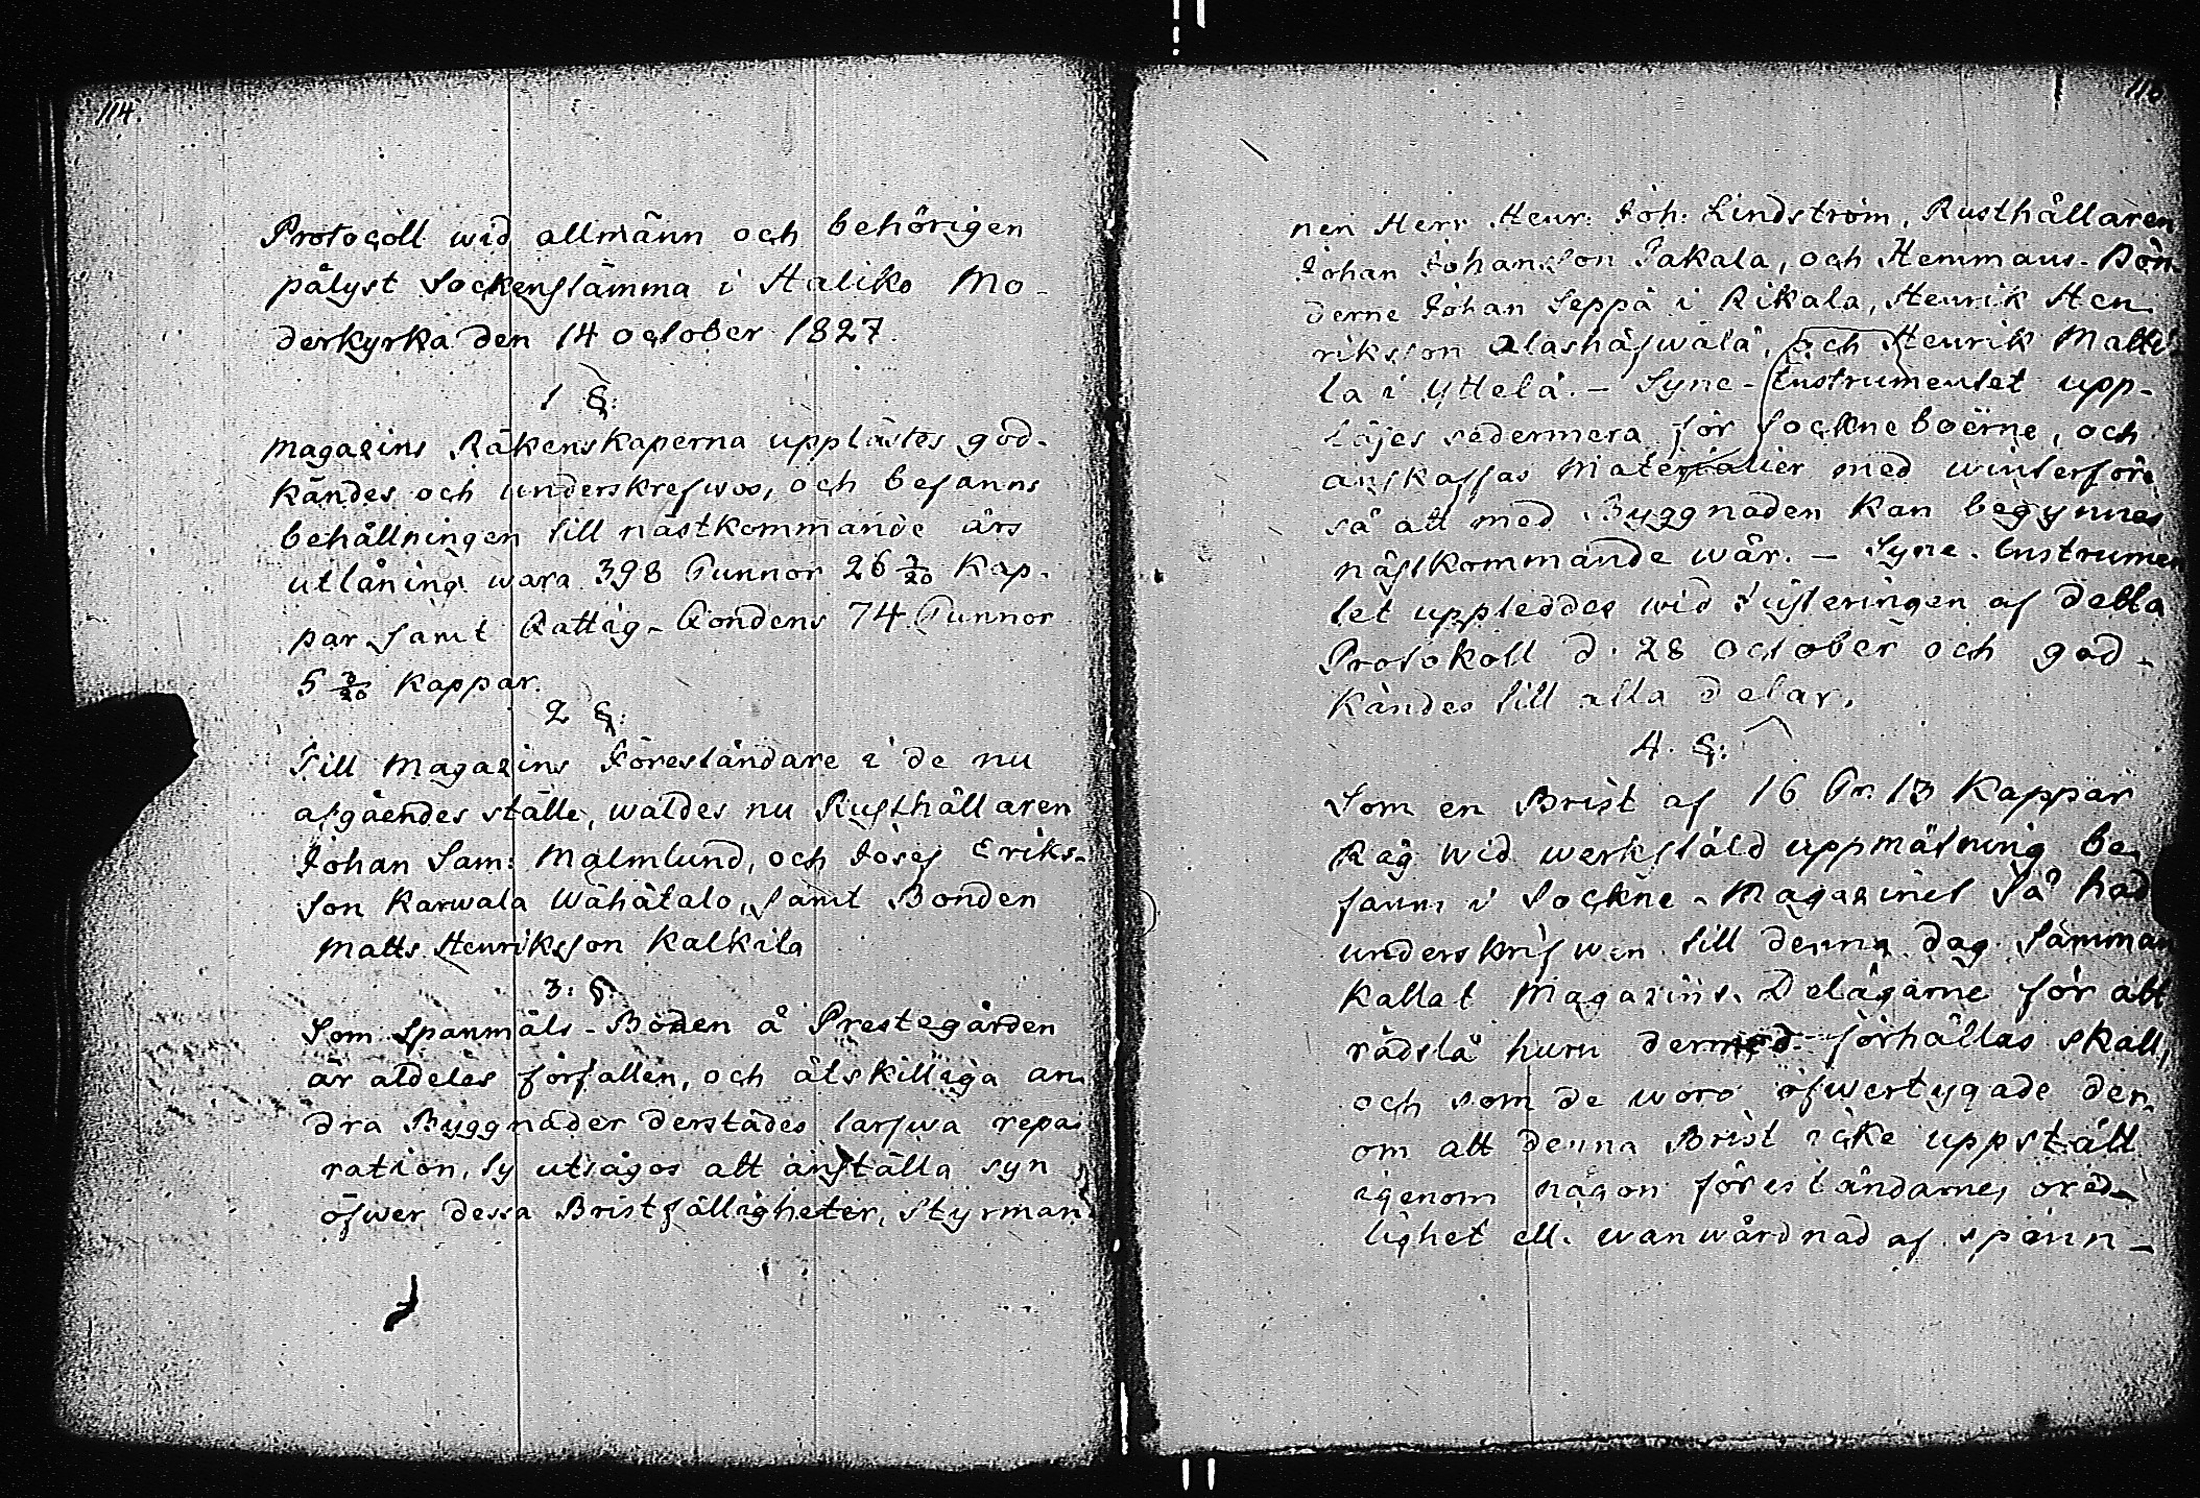 114.
Protocoll wid allmänn och behörigen
pålyst Sockenstämma i Haliko Mo-
derkyrka den 14 october 1827.
1 §:
Magazins Räkenskaperna upplästes god-
kändes och underskrefwos, och befanns
behållningen till nästkommande års
utlåning wara 398 Tunnor 26 7/20 Kap-
par samt Fattig-Fondens 74 Tunnor
5 7/20 Kappar.
2 §:
Till Magazins Föreståndare i de nu
afgåendes ställe, waldes nu Rusthållaren
Johan Sam: Malmlund, och Josef Eriks-
son Karwala Wähätalo, samt Bonden
Matts Henriksson Kalkila
3: §.
Som Spanmåls-Boden å Prestegården
är aldeles förfallen, och åtskilliga an-
dra Byggnader derstädes tarfwa repa-
ration, Ty utsågos att anställa syn
öfwer dessa Bristfälligheter, Styrman-
116
nen Herr Henr: Joh: Lindström, Rusthållaren
Johan Johansson Takala, och Hemmans-Bön-
derne Johan Seppä i Rikala, Henrik Hen
riksson Alashäfwälä, och Henrik Matti-
la i Yttelä. - Syne-Instrumentet upp-
Läses sedermera för Sockneboërne, och
anskaffas Materialier med winterföre
så att med Byggnaden kan begynnes
nästkommande wår. - Syne-Instrumen
tet uppleddes wid Justeringen af detta
Protokoll d. 28 October och god-
kändes till alla delar.
4. §:
Som en Brist af 16 Tr. 13 Kappar
Råg wid werkstäld uppmätning be-
fanns i Sockne-Magazinet Så had
underskrifwen till denna dag samman
kallat Magazins-Delägarne för att
rådslå huru dermed förhållas skall,
och som de woro öfwertygade der-
om att denna Brist icke uppstått
igenom någon föreståndarnes ored-
lighet ell. wanwårdnad af spann-